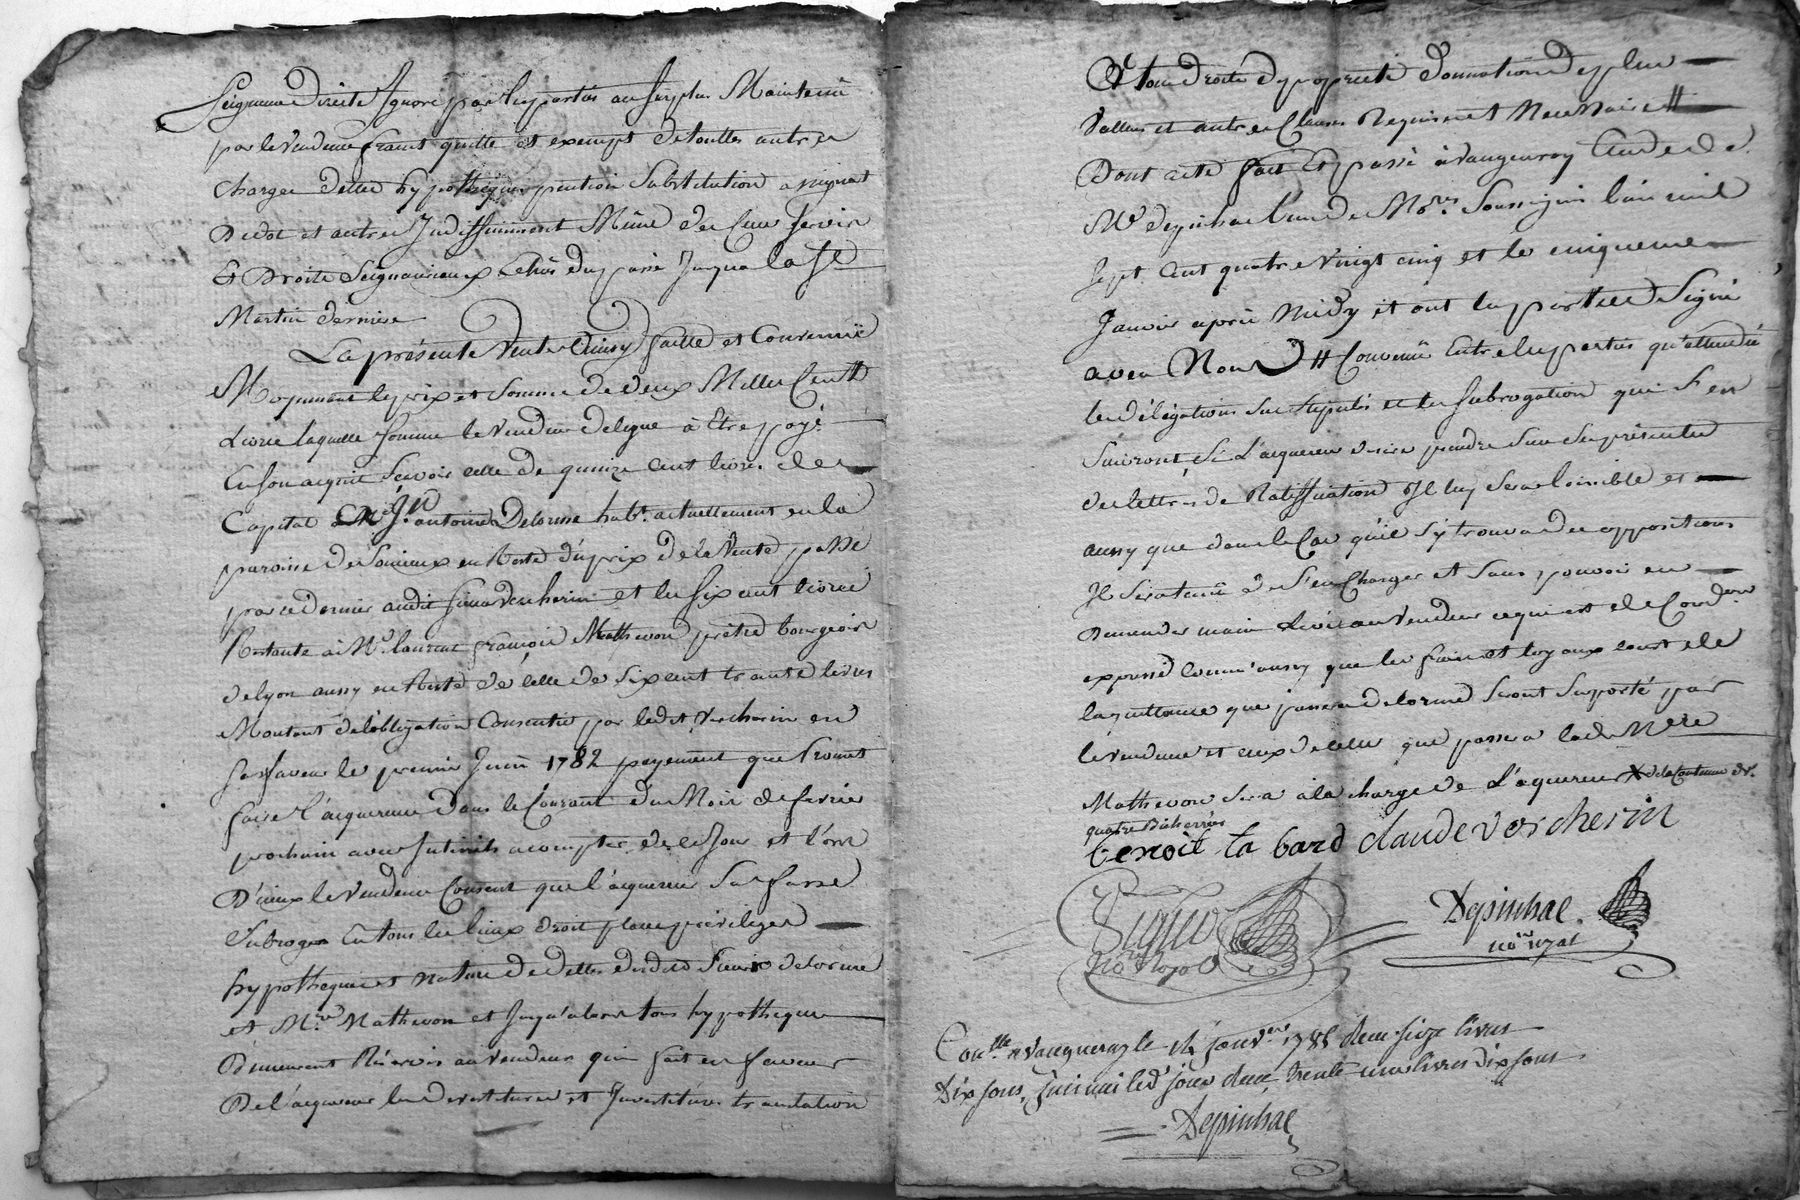 Seigneur Directe Ignoré par les parties au surplus Maintenüe
par le Vendeur franct quitte et exempt de touttes autres
charges dettes hypotheques pention Substitution assignat
De dot et autres Indiffinniment Même des Cens servis
& Droits Seigneuriaux Echus du passé Jusqua la St
Martin derniere
La présente Vente Ainsy faitte et Convenüe
Moyennant le prix et Somme de deux Milles Cent tt
Livres laquelle Somme le Vendeur delegue à Etre payé
En son acquit Scavoir celle de quinze Cent livres de
Capital à Mr Jn antoine Delorme habt actuellement en la
paroisse de Soucieux en Reste du prix de la Vente passé
par ce dernier audit Sieur Vercherin et les six cent livres
Restante à Mr laurent françois Mathevon prêtre bourgeois
de lyon aussy en Reste de celle de Six cent trante livres
Montant de l'obligation Consentie par ledit Vercherin en
sa faveur le premier Juin 1782 payement que Promet
faire l'acquereur dans le Courant du Mois de fevrier
prochain avec Interets a compter de ce Jour et l'ors
D'iceux le Vendeur Consent que l'acquereur Se fasse
Subroger En tous les lieux droit place privileges
hypotheques et nature de dettes desdits Sieurs delorme
et Mre Mathevon et Jusqu'alors tous hypotheques
Demeurent Réservés au Vendeur qui fait en faveur
De l'acquereur les devestitures et Investitures translation
& tous droits de proprieté donnation de plus
Valleur et autres Clauses Requises et Necessaires tt
Dont acte fait Et passé à Vaugneray Etude de
Me depinhac l'un des Nores Soussignés l'an mil
Sept Cent quatre Vingt cinq et le cinquieme
Janvier après Midy et ont les parties Signé
avec Nous tt Convenü Entre les parties qu'attendü
les délégations sus Stipulés et les subrogation qui s'en
Suivront, Si L'acquereur desire prendre Sur Ses présentes
des lettres de Ratiffication Il luy Sera loisible et
aussy que dans le Cas qu'il s'y trouva des oppositions
Il Sera tenü de S'en Charger et Sans pouvoir en
Demander main levée au Vendeur ce qui est de Condon
expresse comm'aussy que les frais et loyaux cout de
la quittance que passera delorme Seront Suporté par
le Vendeur et ceux de celle que passera ledit Mere
Mathevon Sera à la charge de L'acquereur X de la Contenue de
quatre Bicherées
benoit la bard claude vercherin
Nore Royal
Depinhac
nore royal
Conllé a Vaugneray le 14 janver 1785 Reçu Seize livres
Dix sous, led jour deux trente une livres dix sous
Depinhac